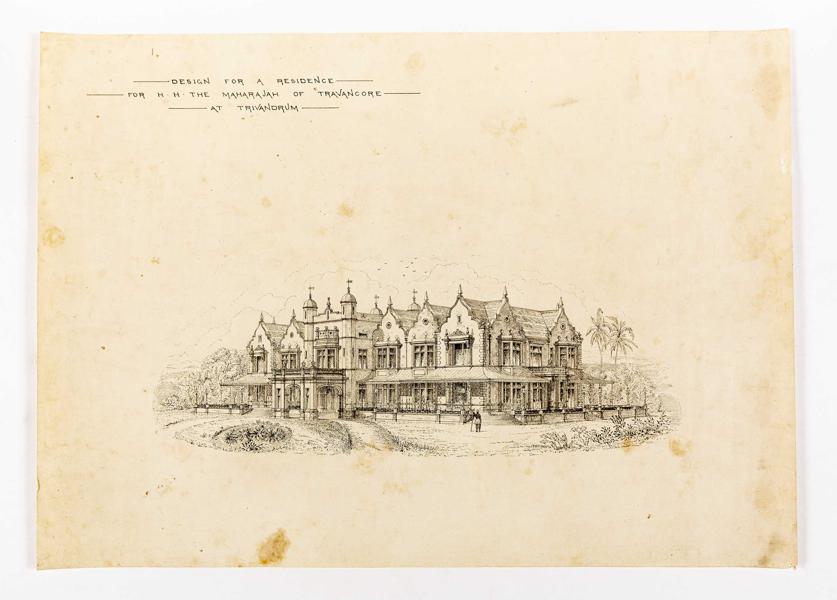 DESIGN FOR A RESIDENCE
FOR H·H· THE MAHARAJAH OF TRAVANCORE
AT TRIVANDRUM